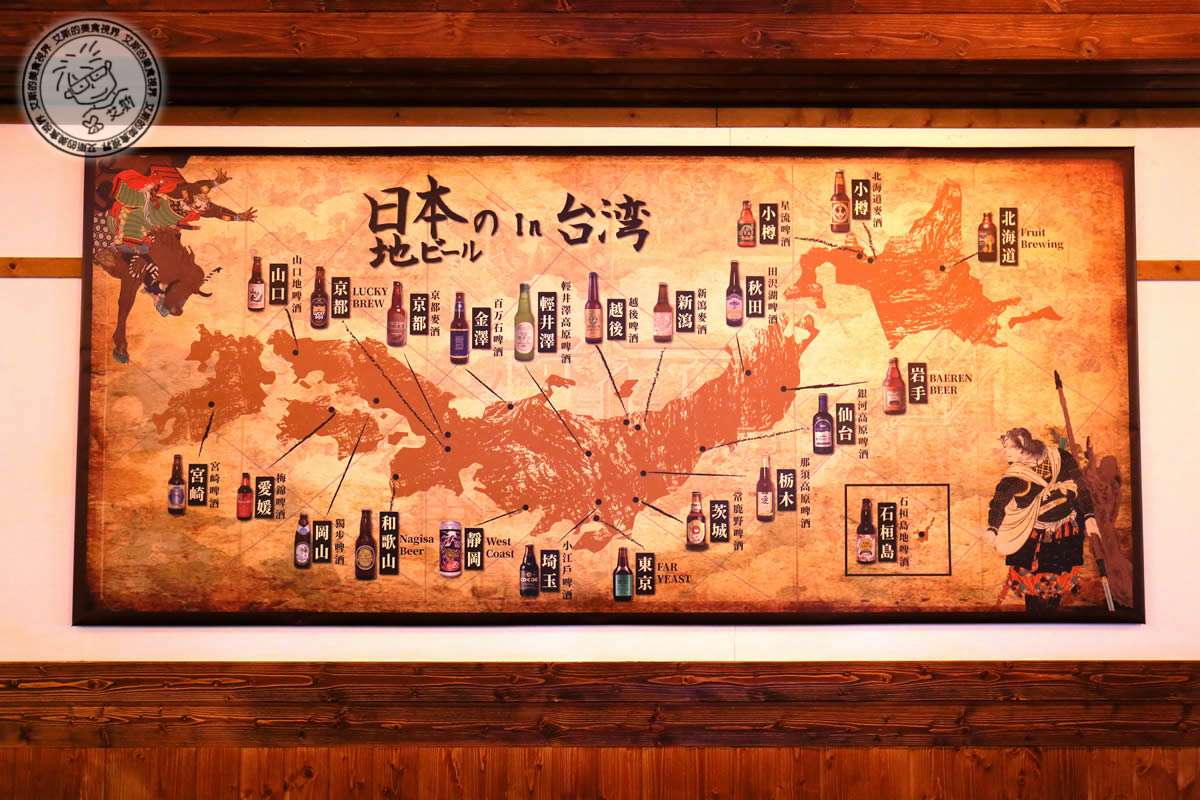 艾斯的美食視界 艾斯的美食視界 艾斯的美食視界 艾斯的美食視界
艾斯
日本の in 台湾
地ビール
小樽
星流啤酒
小樽
北海道麥酒
北海道
Fruit
Brewing
山口
山口地啤酒
京都
LUCKY
BREW
京都
京都麥酒
金澤
百万石啤酒
輕井澤
輕井澤高原啤酒
越後
越後啤酒
新瀉
新瀉麥酒
秋田
田沢湖啤酒
岩手
BAEREN
BEER
仙台
銀河高原啤酒
宮崎
宮崎啤酒
愛媛
梅錦啤酒
岡山
獨步啤酒
和歌山
Nagisa
Beer
靜岡
West
Coast
埼玉
小江戶啤酒
東京
FAR
YEAST
茨城
常鹿野啤酒
栃木
那須高原啤酒
石桓島
石桓島地啤酒